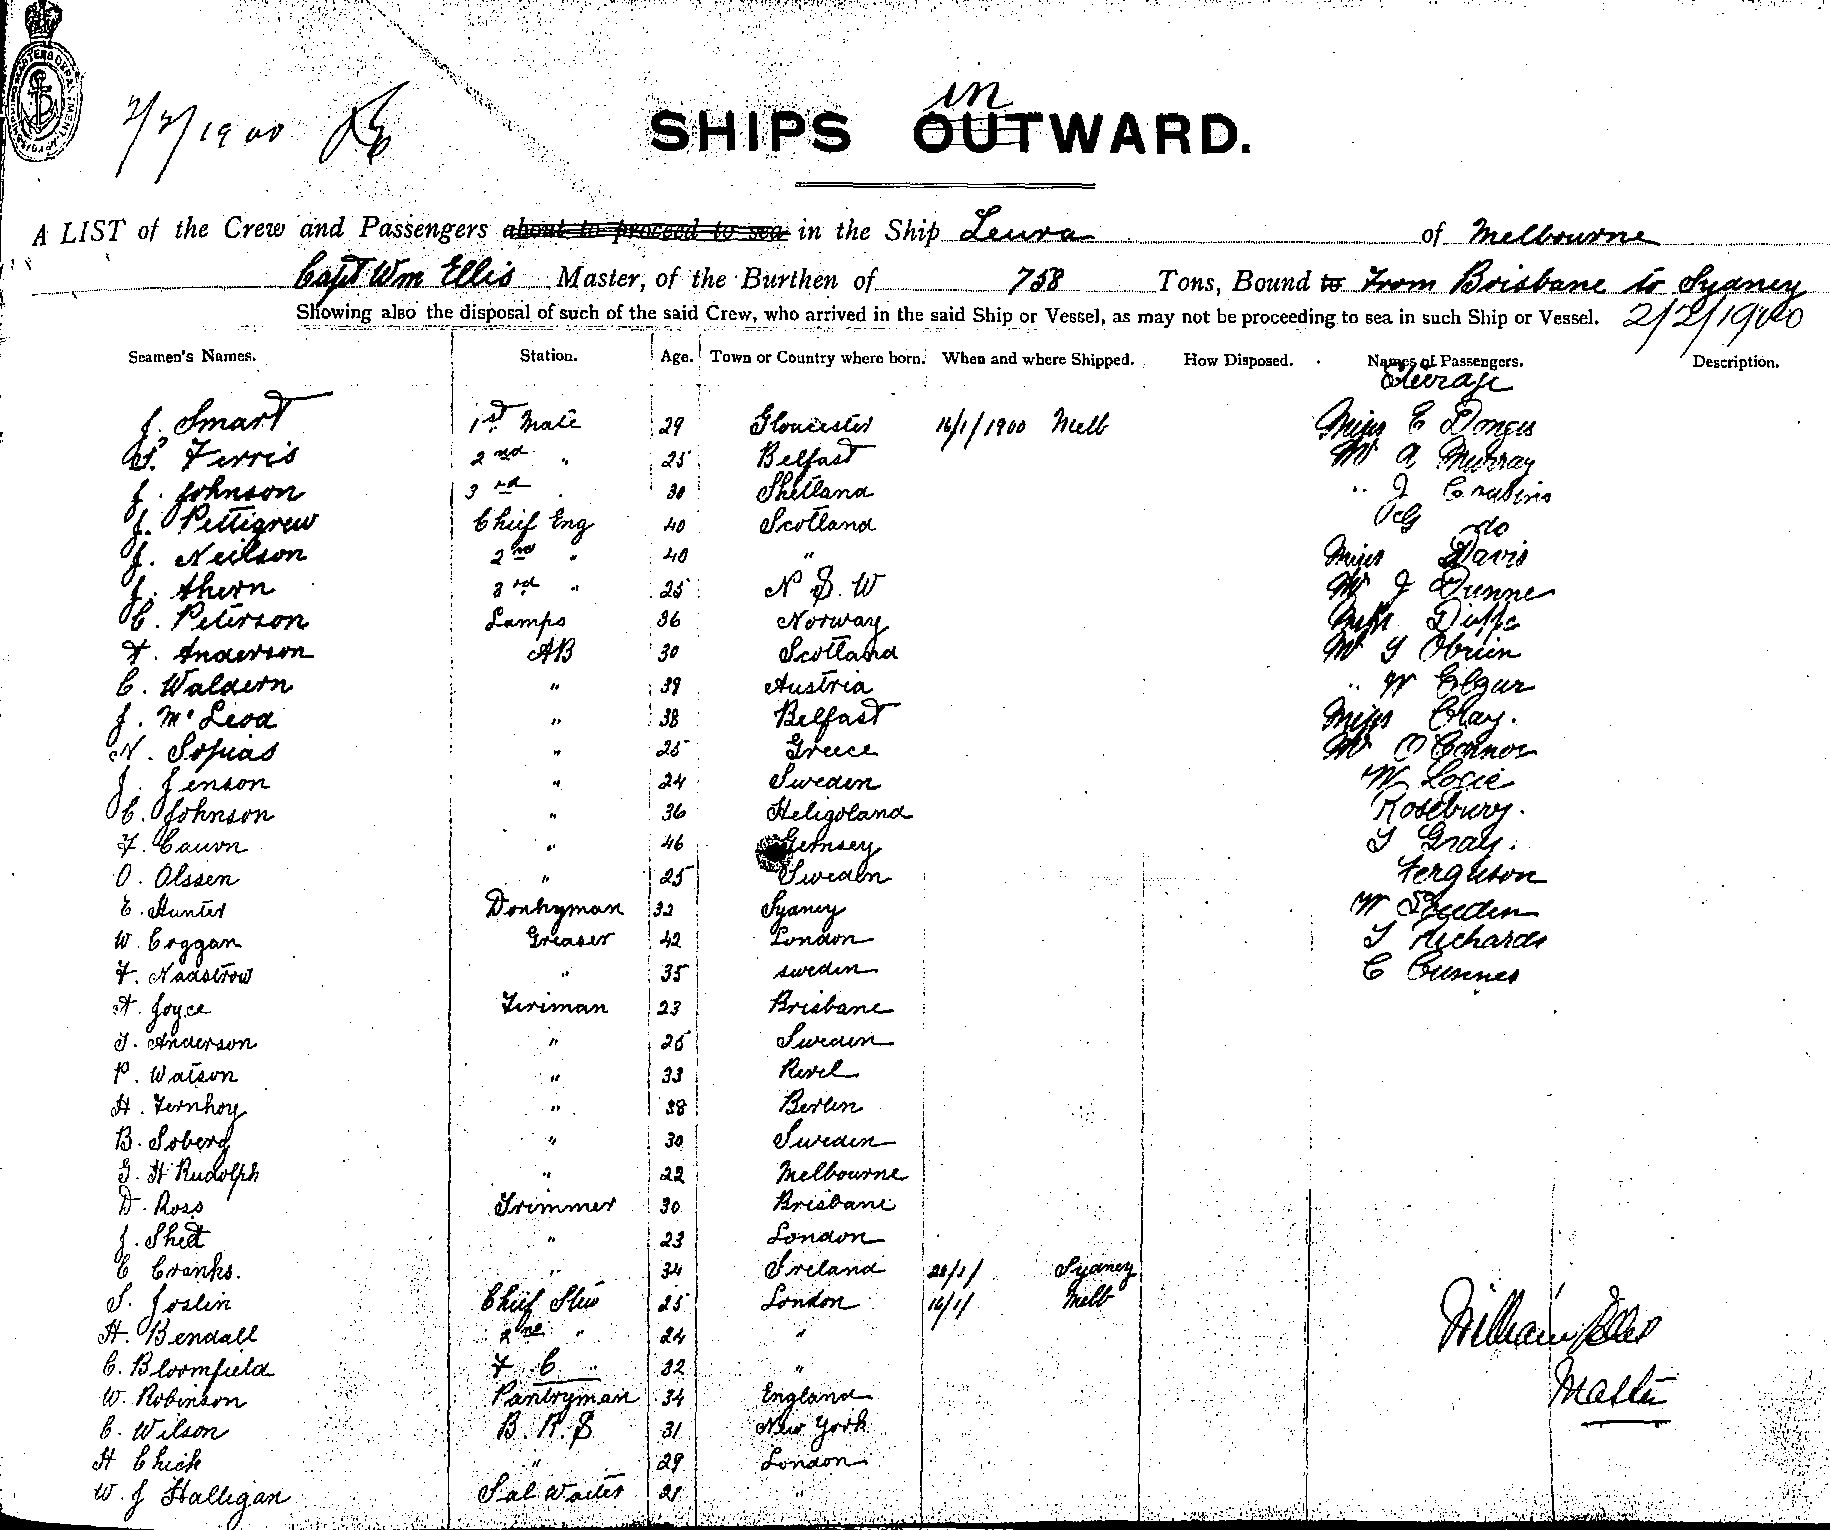 2/2/1900
in
SHIPS OUTWARD.
A LIST of the Crew and Passengers about to proceed to sea in the Ship Leura of Melbourne
Capt Wm Ellis Master, of the Burthen of 758 Tons, Bound to From Brisbane to Sydney
Showing also the disposal of such of the said Crew, who arrived in the said Ship or Vessel, as may not be proceeding to sea in such Ship or Vessel. 2/2/1900
Seamen's Names. Station. Age. Town or Country where born. When and where Shipped. How Disposed. Names of Passengers. Description.
Steerage
J. Smart 1st Mate 29 Gloucester 16/1/1900 Melb Miss E
Ferris 2nd " 25 Belfast Mr A Murray
J. Johnson 3rd " 30 Shetland " J
J. Pettigrew Chief Eng 40 Scotland do
J. Neilson 2nd " 40 " Miss Davis
J. Ahern 3rd " 25 N S W Mr J Dunne
C. Peterson Lamps 36 Norway Miss
A. Anderson AB 30 Scotland Mr OBrien
C. Waldern " 39 Austria " W Elgar
J. McLeod " 38 Belfast Miss Clay.
N. Sofuas " 25 Greece Mr OConnor
J. Jenson " 24 Sweden W Logie
C. Johnson " 36 Heligoland Rosebury.
F. Cauvn " 46 Gernsey Gray.
O. Olssen " 25 Sweden Ferguson
E. Hunter Donkyman 32 Sydney W
W. Coggan Greaser 42 London Richards
F. Nadstrow " 35 Sweden C
A. Joyce Fireman 23 Brisbane
J. Anderson " 26 Sweden
P. Watson " 33 Revel
H. Fernhoy " 38 Berlin
B. Soberg " 30 Sweden
G. H Rudolph " 22 Melbourne
D. Ross Trimmer 30 Brisbane
J. Shed " 23 London
E Cranks. " 34 Ireland Sydney
S. Joslin Chief Stew 25 London 16/1/ Melb
H. Bendall 2nd " 24 "
C. Bloomfield F. C " 32 "
W. Robinson Pantryman 34 England
C. Wilson B. R. S 31 New York
H Chick " 29 London
W. J Halligan Sal Waiter 21 "
William Ellis
Master